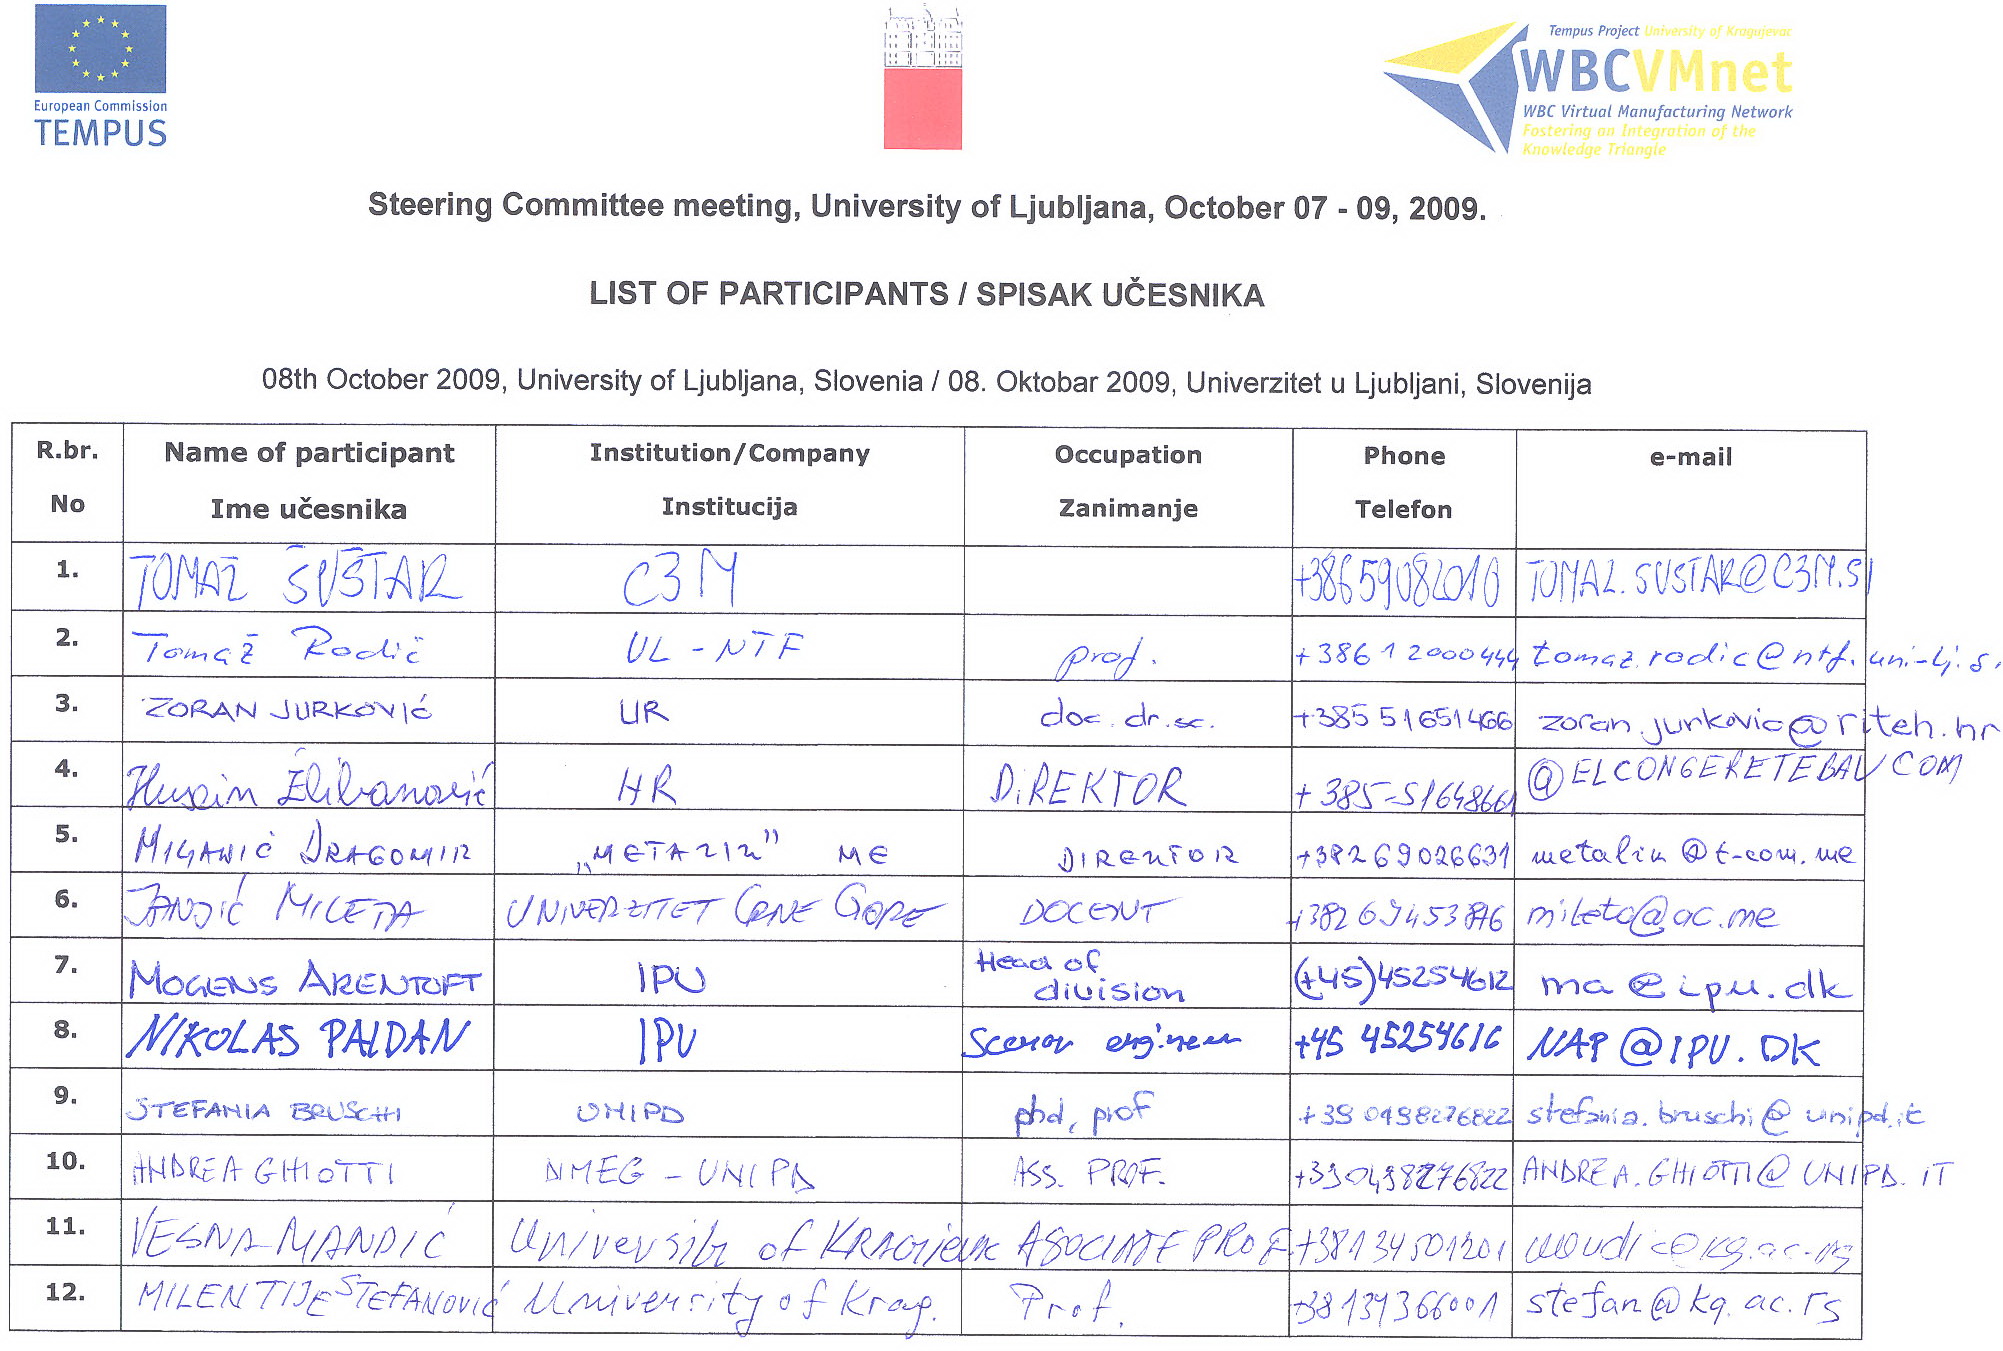 European Commission
TEMPUS
Tempus Project University of Kragujevac
WBCVMnet
WBC Virtual Manufacturing Network
Fostering an Integration of the
Knowledge Triangle
Steering Committee meeting, University of Ljubljana, October 07 - 09, 2009.
LIST OF PARTICIPANTS / SPISAK UČESNIKA
08th October 2009, University of Ljubljana, Slovenia / 08. Oktobar 2009, Univerzitet u Ljubljani, Slovenija
R.br. Name of participant Institution/Company Occupation Phone e-mail
No Ime učesnika Institucija Zanimanje Telefon
1. TOMAŽ ŠUŠTAR C3M +38659082010 TOMAZ.SUSTAR@C3M.SI
2. Tomaž Rodič UL - NTF prof. +386 1 2000444 tomaz.rodic@ntf.uni-lj.si
3. ZORAN JURKOVIĆ UR doc.dr.sc. +385 51651466 zoran.jurkovic@riteh.hr
4. Husein HR DiREKTOR +385-51648661
5. DRAGOMIR ME DIREKTOR +38269026631 metalik@t-com.me
6. JANJIĆ MILETA UNIVERZITET CRNE GORE DOCENT mileta@ac.me
7. MOGENS ARENTOFT IPU Head of division (+45)45254612 ma@ipu.dk
8. NIKOLAS PALDAN IPU engineer +45 45254616 NAP@IPU.DK
9. STEFANIA BRUSCHI UNIPD phd, prof +39 0498276822 stefania.bruschi@unipd.it
10. ANDREA GHIOTTI DIMEG - UNIPD ASS. PROF. +390498276822 ANDREA.GHIOTTI@UNIPD.IT
11. VESNA MANDIĆ University of KRAGUJEVAC ASOCIATE PROF +38134501201
12. MILENTIJE STEFANOVIĆ University of Krag. Prof. +38134366001 stefan@kg.ac.rs